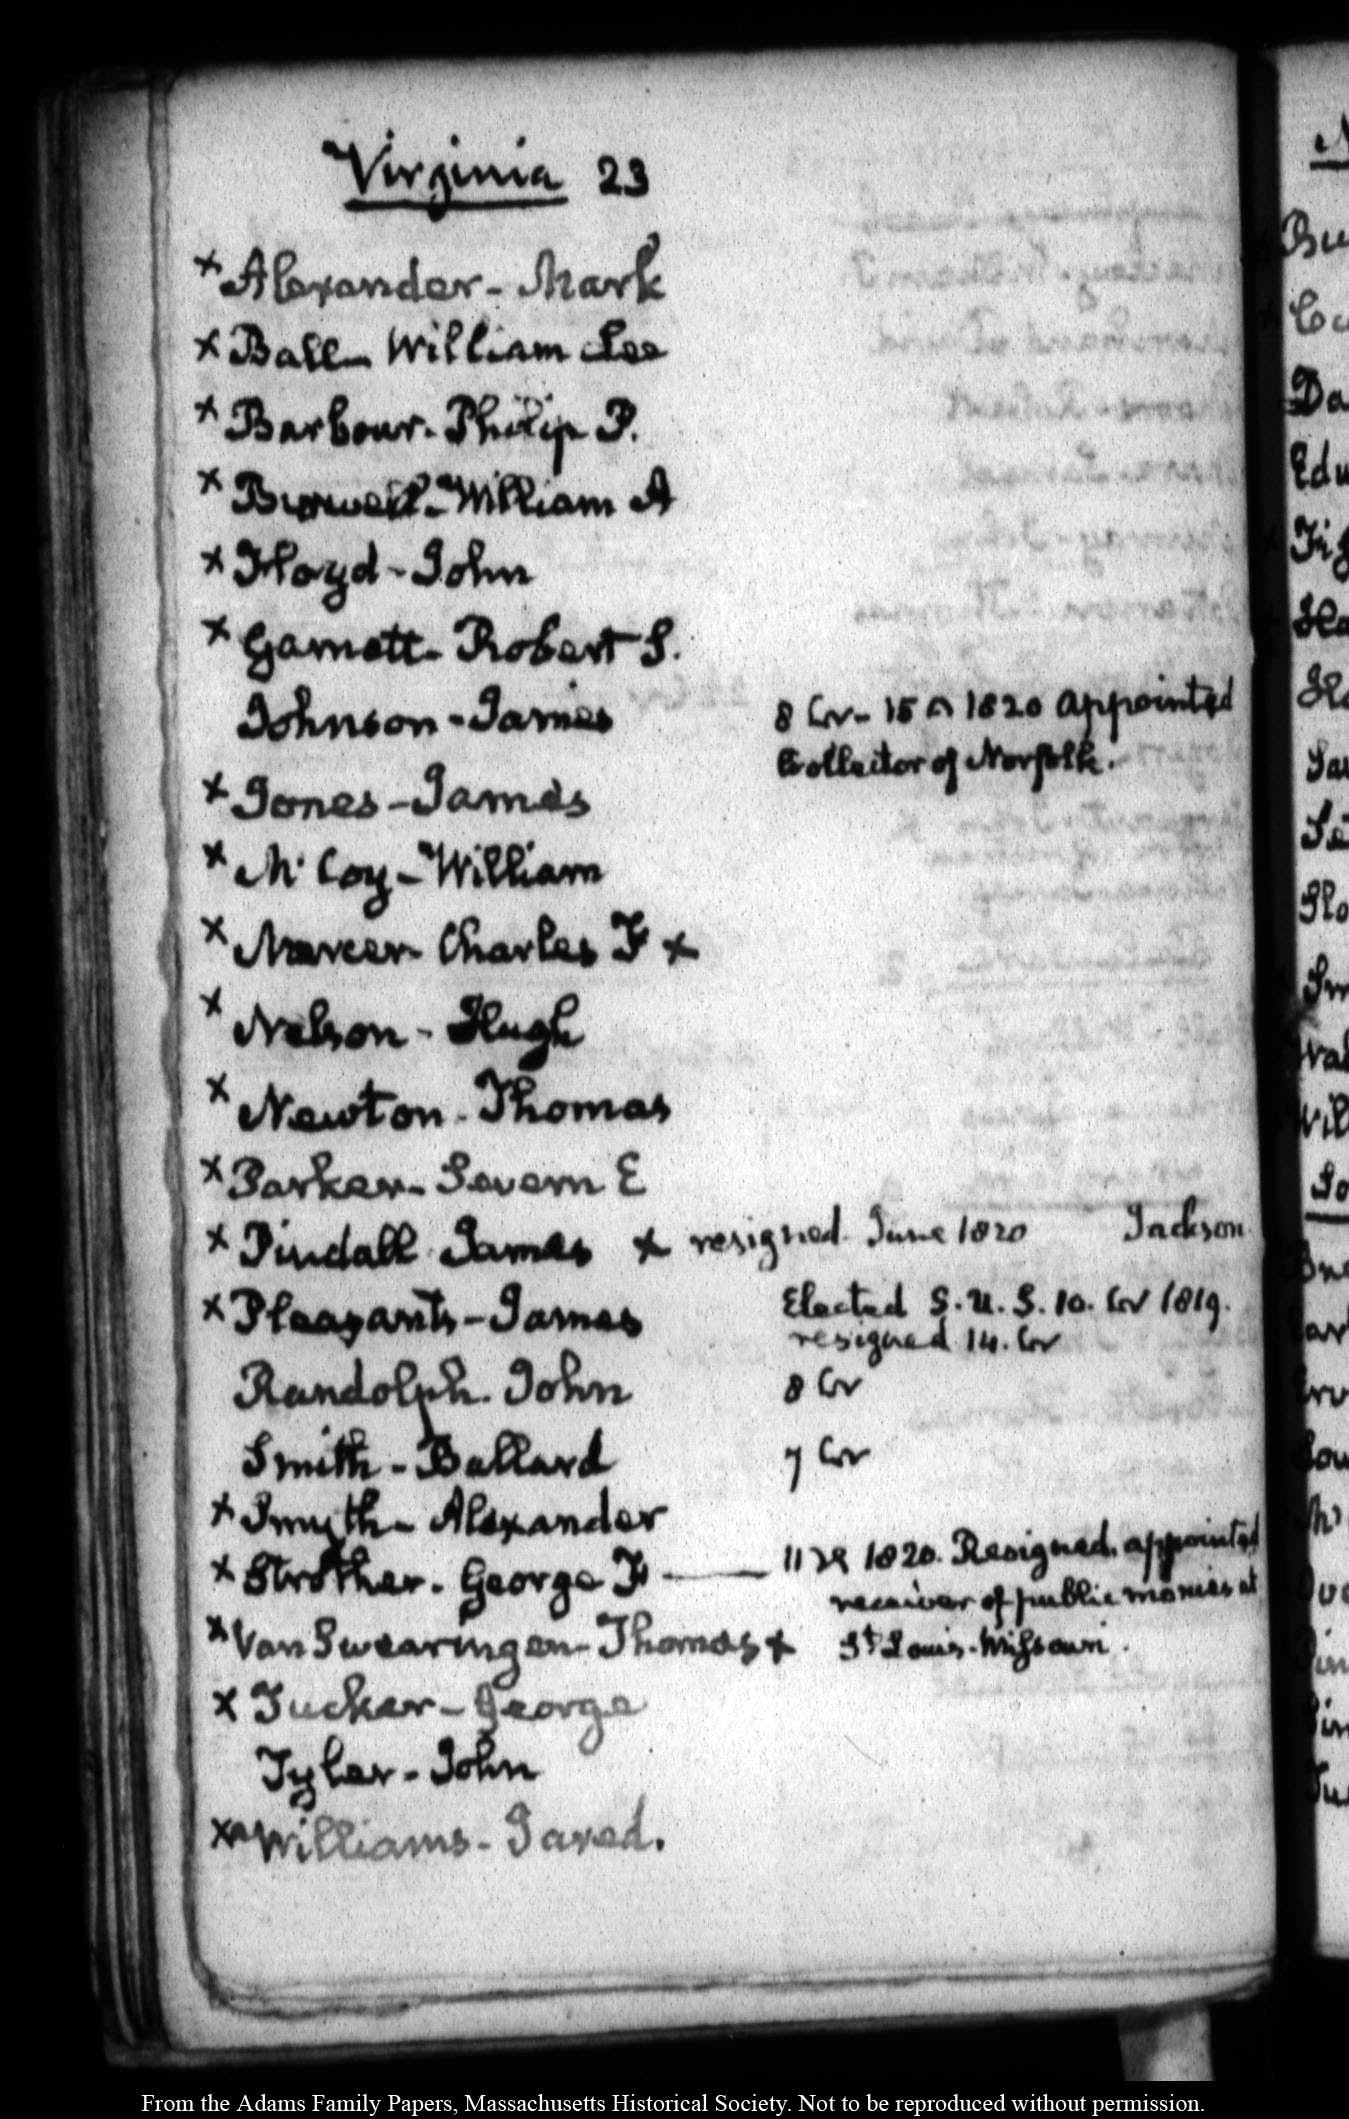 Virginia 23
× Alexander - Mark
× Ball - William Lee
× Barbour - Philip P.
× Burwell - William A
× Floyd - John
× Garnett - Robert S.
Johnson - James 8 Cr - 15 1820 appointed
Collector of Norfolk.
× Jones - James
× McCoy - William
× Mercer - Charles F ×
× Nelson - Hugh
× Newton - Thomas
× Parker - Severn E
× Pindall James × resigned June 1820 Jackson
× Pleasants - James Elected S. U. S. 10. Cr 1819.
resigned 14. Cr
Randolph. John 8 Cr
Smith - Ballard 7 Cr
× Smyth - Alexander
× Strother - George F — 11 1820. Resigned. appointed
receiver of public monies at
St Louis - Missouri.
× Van Swearingen - Thomas ×
× Tucker - George
Tyler - John
× Williams - Jared.
From the Adams Family Papers, Massachusetts Historical Society. Not to be reproduced without permission.